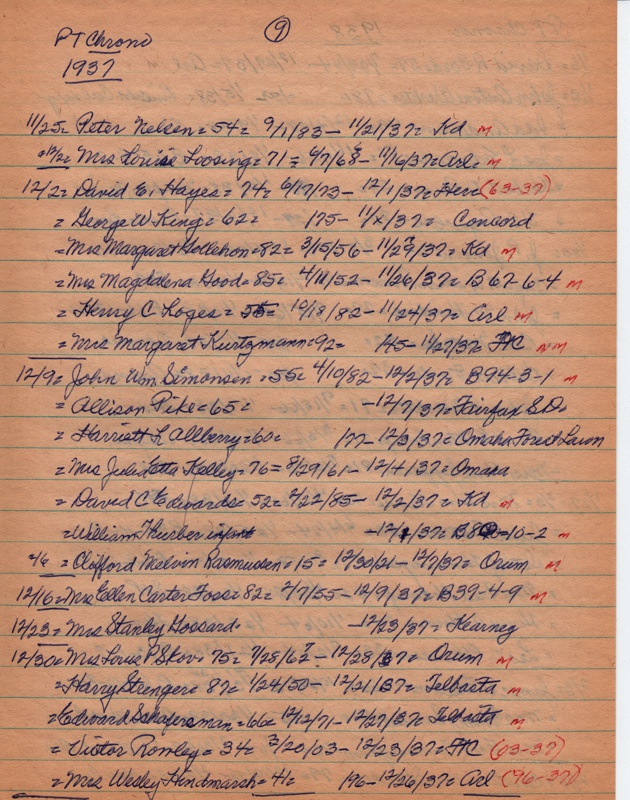 PT Chrono ⑨
1937
11/25 = Peter Nelsen = 54 = 9/1/83 - 11/21/37 = Kd m
12/2 = Mrs Louise Loosing = 71 = 6/7/66 - 11/16/37 = Arl = m
12/2 = David E. Hayes = 74 = 6/17/73 - 12/1/37 = Her (63-37)
= George W King = 62 = /75 - 11/ /37 = Concord
= Mrs Margaret Gollehon = 82 = 3/15/56 - 11/29/37 = Kd m
= Mrs Magdalena Good = 85 = 4/11/52 - 11/26/37 = B 67-6-4 m
= Henry C Loges = 55 = 10/18/82 - 11/24/37 = Arl m
= Mrs Margaret Kurtzmann = 92 = /45 - 11/27/37 = FtC m
12/9 = John Wm Simonsen = 55 = 4/10/82 - 12/2/37 = B94-3-1 m
= Allison Pike = 65 = - 12/7/37 = Fairfax S.D.
= Harriett L Allberry = 60 = /77 - 12/3/37 = Omaha Forest Lawn
= Mrs Julia Etta Kelley = 76 = 8/29/61 - 12/4/37 = Omaha
= David C Edwards = 52 = 2/22/85 - 12/2/37 = Kd m
= William Thurber infant - 12/ /37 = B8 -10-2 m
= Clifford Melvin Rasmussen = 15 = 12/30/21 - 12/7/37 = Orum m
12/16 = Mrs Ellen Carter Foss = 82 = 2/7/55 - 12/9/37 = B39-4-9 m
12/23 = Mrs Stanley Gossard = - 12/23/37 = Kearney
12/30 = Mrs Louis P Skov = 75 = 7/28/62 - 12/28/37 = Orum m
= Harry Strenger = 87 = 1/24/50 - 12/21/37 = Telbasta m
= Edward Schafersman = 66 = 12/12/71 - 12/27/37 = Telbasta m
= Victor Rowley = 34 = 3/20/03 - 12/23/37 = FtC (03-37)
= Mrs Wesley Hindmarsh = 41 = /96 - 12/26/37 = Arl (96-37)